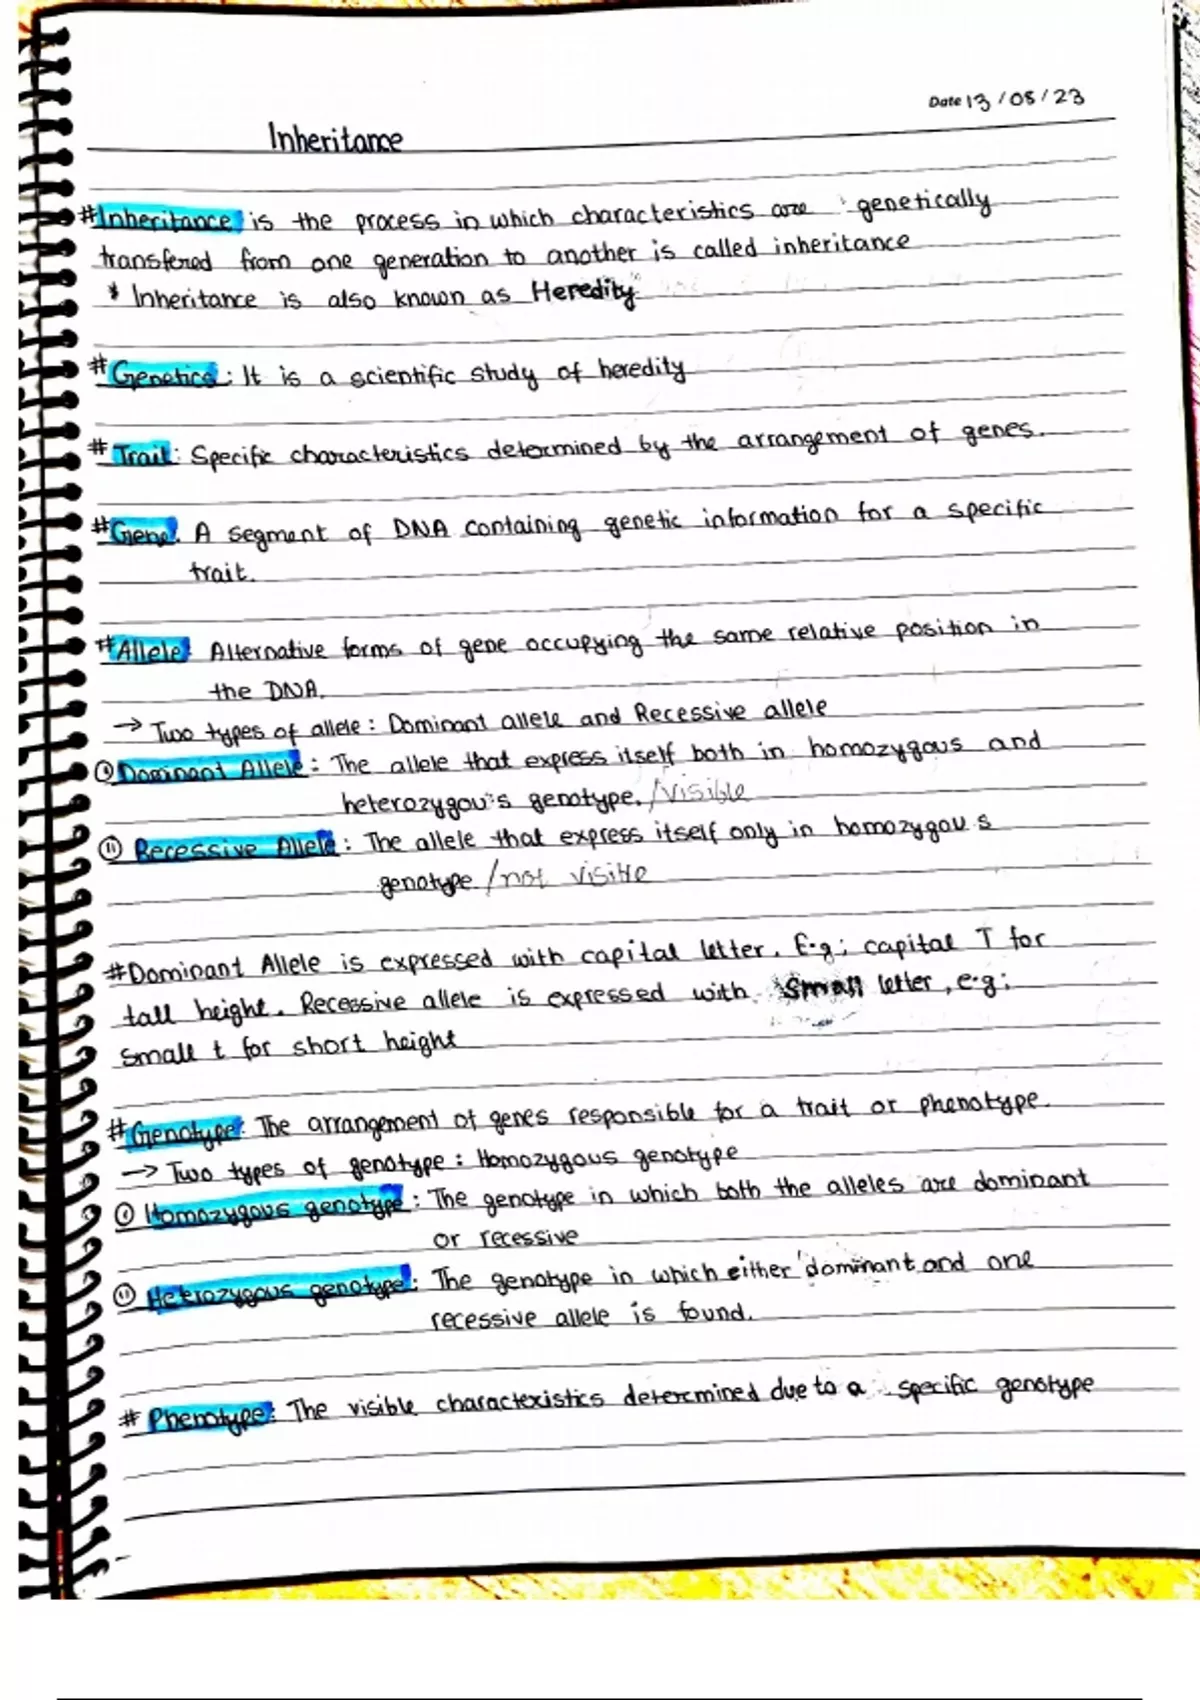 Date 13/08/23
Inheritance
#Inheritance is the process in which characteristics are genetically
transfered from one generation to another is called inheritance
* Inheritance is also known as Heredity
#Genetics: It is a scientific study of heredity
#Trait: Specific characteristics determined by the arrangement of genes.
#Gene: A segment of DNA containing genetic information for a specific
trait.
#Allele: Alternative forms of gene occupying the same relative position in
the DNA.
→ Two types of allele: Dominant allele and Recessive allele
(i) Dominant Allele: The allele that express itself both in homozygous and
heterozygous genotype. /visible
(ii) Recessive Allele: The allele that express itself only in homozygous
genotype /not visible
#Dominant Allele is expressed with capital letter. E.g; capital T for
tall height. Recessive allele is expressed with small letter, e.g;
small t for short height
#Genotype: The arrangement of genes responsible for a trait or phenotype.
→ Two types of genotype: Homozygous genotype
(i) Homozygous genotype: The genotype in which both the alleles are dominant
or recessive
(ii) Heterozygous genotype: The genotype in which either dominant and one
recessive allele is found.
# Phenotype: The visible characteristics determined due to a specific genotype